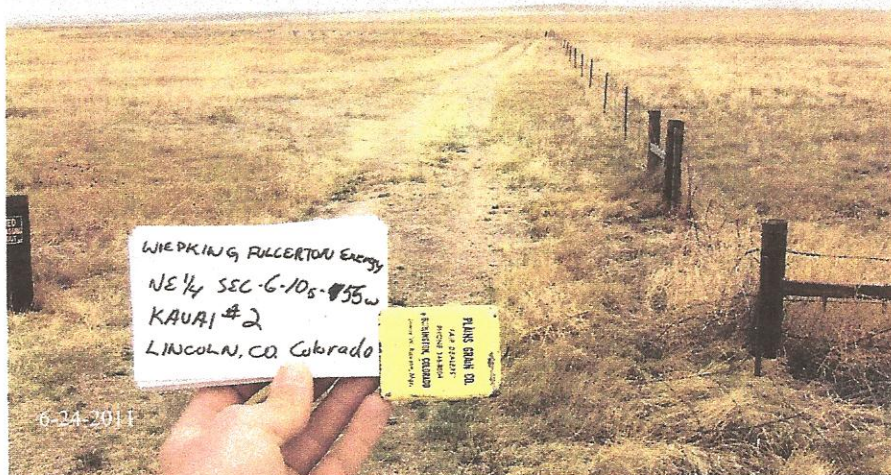 WIEPKING FULLERTON Energy
NE 1/4 SEC-6-10s-55w
KAUAI #2
LINCOLN, CO. Colorado
PLAINS GRAIN CO.
BURLINGTON, COLORADO
6-24-2011